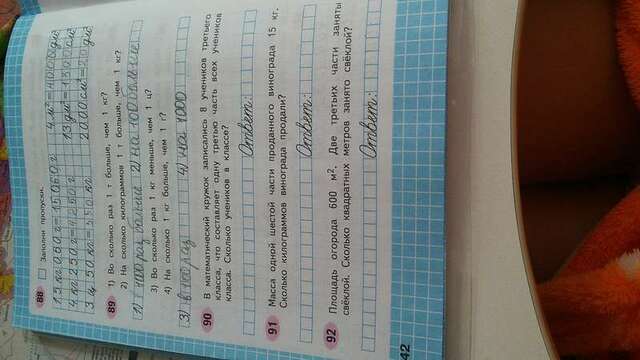 88 Заполни пропуски.
15 кг 060 г = 15060 г 4 м² = 400 дм²
4 кг 250 г = 4250 г 13 дм² = 1300 см²
3 ц 50 кг = 350 кг 2000 см² = 20 дм²
89 1) Во сколько раз 1 т больше, чем 1 кг?
2) На сколько килограммов 1 т больше, чем 1 кг?
3) Во сколько раз 1 кг меньше, чем 1 ц?
4) На сколько 1 кг больше, чем 1 г?
больше 2) на 100 больше
3) в 100 раз 4) на 1000
90 В математический кружок записались 8 учеников третьего
класса, что составляет одну третью часть всех учеников
класса. Сколько учеников в классе?
Ответ:
91 Масса одной шестой части проданного винограда 15 кг.
Сколько килограммов винограда продали?
Ответ:
92 Площадь огорода 600 м². Две третьих части заняты
свёклой. Сколько квадратных метров занято свёклой?
Ответ:
42